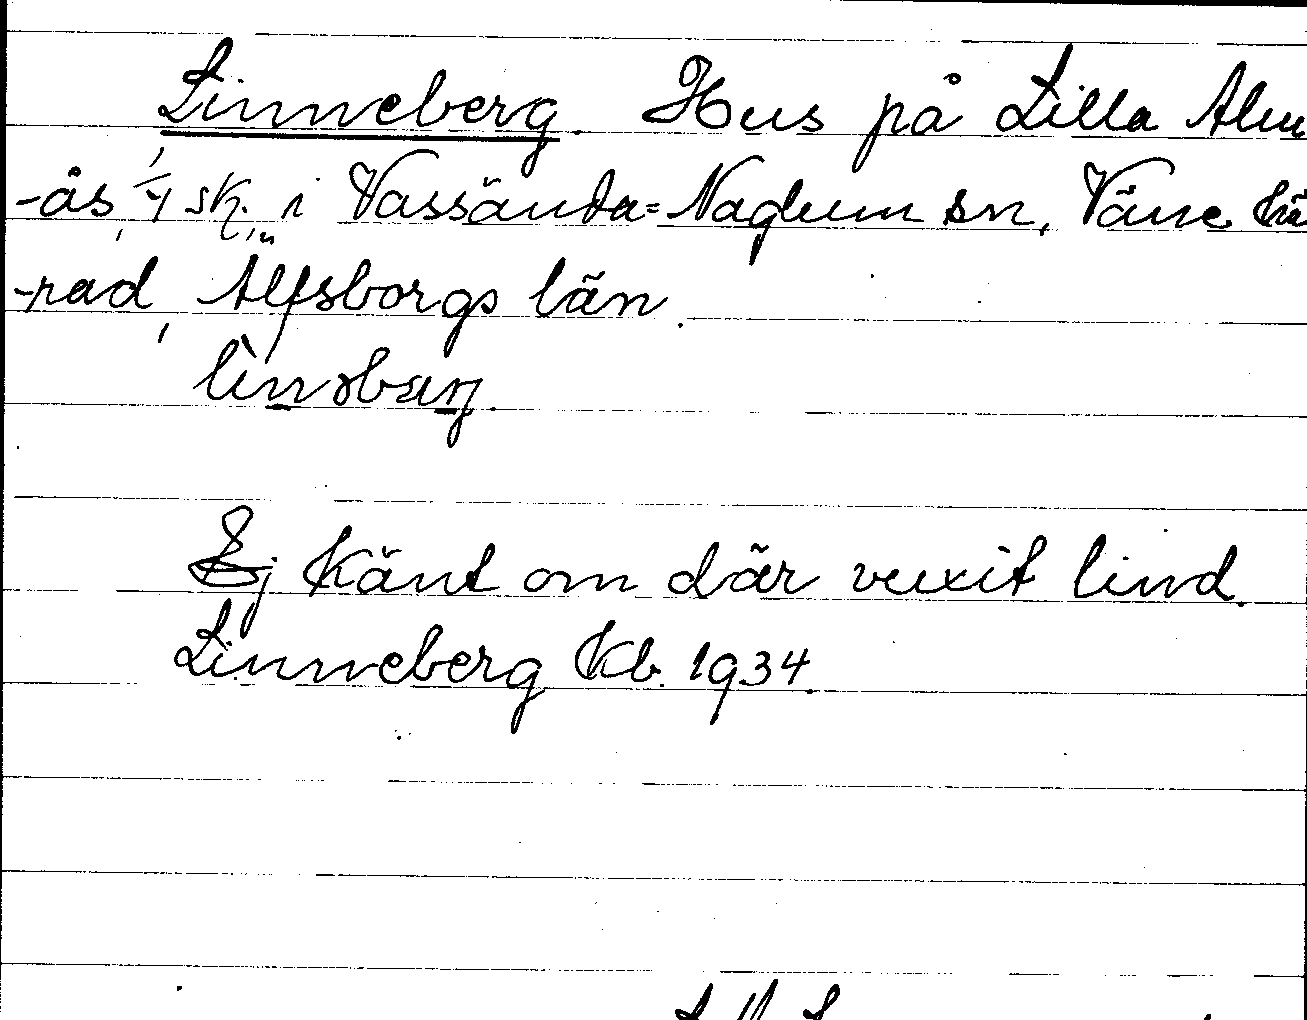 Linneberg. Hus på Lilla Alm
-ås, 1/4 sk. i Vassända=Naglum sn, Väne hä
-rad, Älfsborgs län.
Ej känt om där vuxit lind.
Linneberg Kb. 1934.